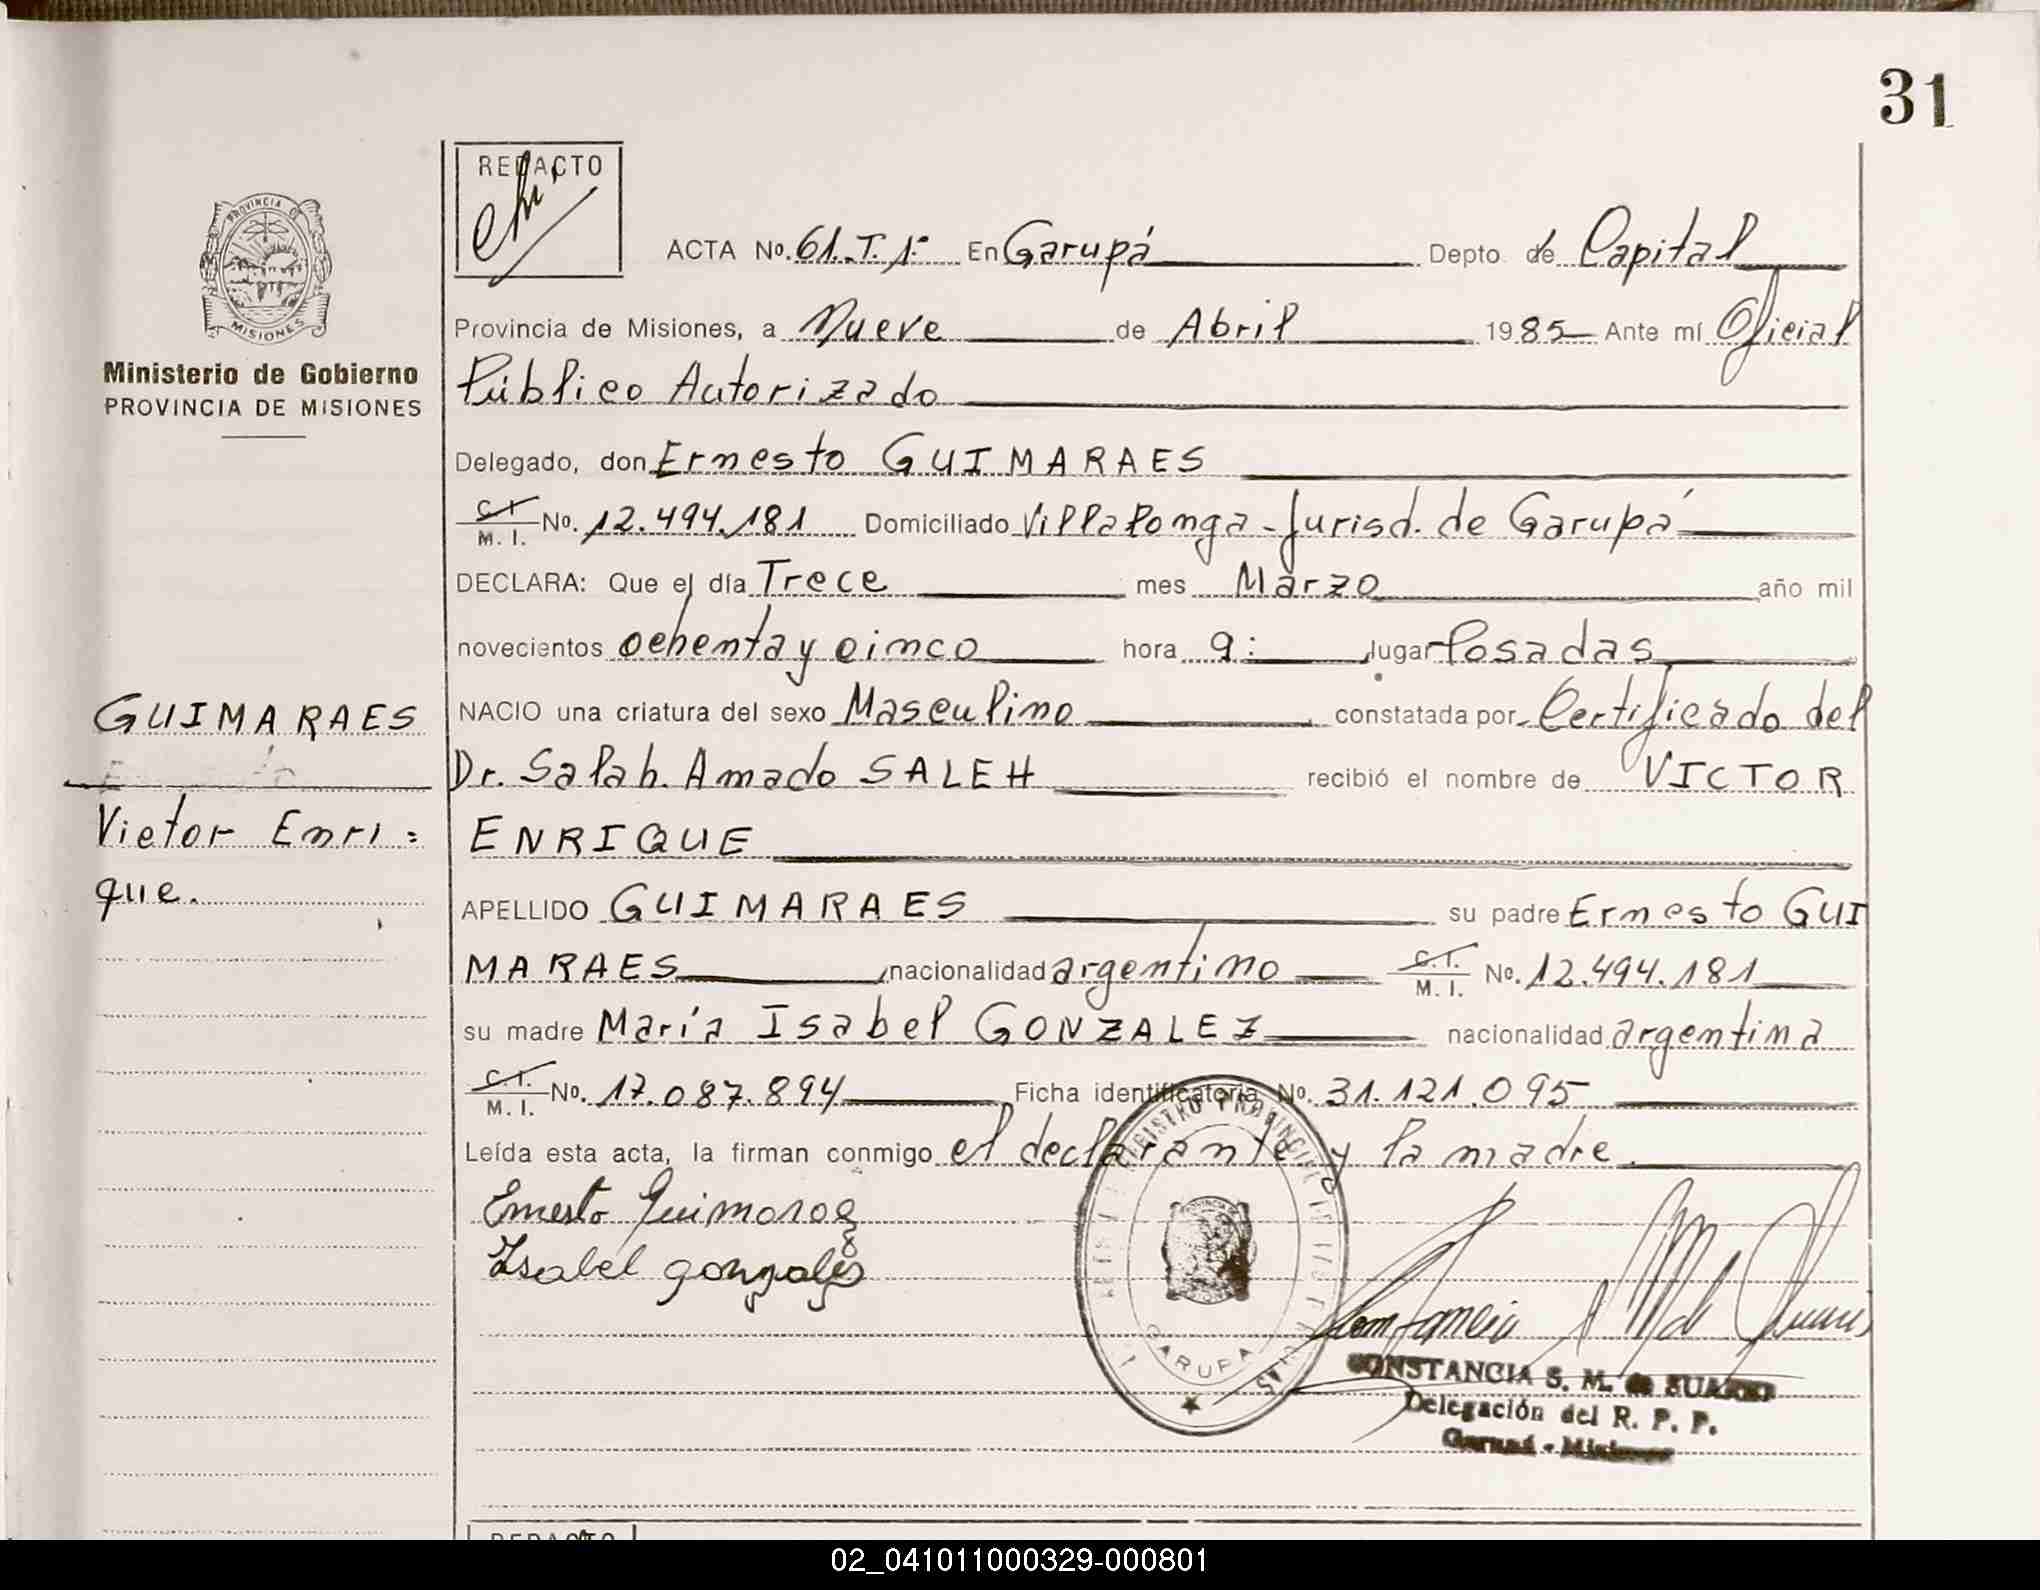 31
REDACTO
PROVINCIA DE
MISIONES
Ministerio de Gobierno
PROVINCIA DE MISIONES
ACTA No. 61. T. 1º En Garupá Depto de Capital
Provincia de Misiones, a Nueve de Abril 1985 Ante mí Oficial
Público Autorizado
Delegado, don Ernesto GUIMARAES
C.I. M. I. No. 12.494.181 Domiciliado Villalonga - Jurisd. de Garupá
DECLARA: Que el día Trece mes Marzo año mil
novecientos ochenta y cinco hora 9: lugar Posadas
GUIMARAES
NACIO una criatura del sexo Masculino constatada por Certificado del
Dr. Salah. Amado SALEH recibió el nombre de VICTOR
Victor Enri=
ENRIQUE
que.
APELLIDO GUIMARAES su padre Ernesto GUI
MARAES nacionalidad argentino C.I. M. I. No. 12.494.181
su madre María Isabel GONZALEZ nacionalidad argentina
C.I. M. I. No. 17.087.894 Ficha identificatoria No. 31.121.095
Leída esta acta, la firman conmigo el declarante y la madre.
Ernesto Guimaraes
Isabel gonzales
GARUPA
CONSTANCIA S. M. de SUAREZ
Delegación del R. P. P.
Garupá - Misiones
REDACTO
02_041011000329-000801